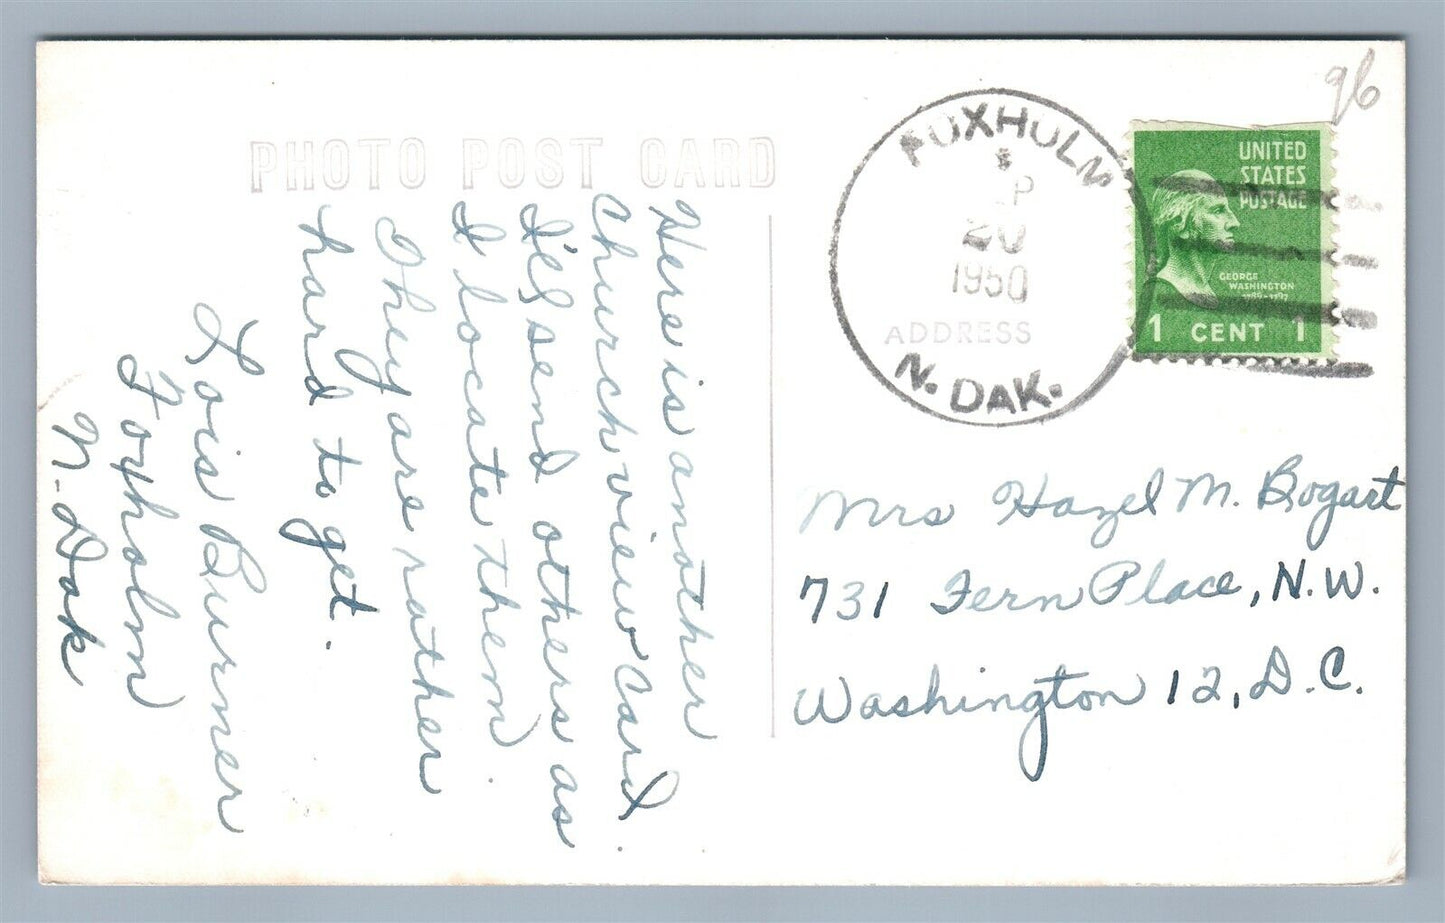 PHOTO POST CARD
Here is another
Church view card.
I'll send others as
I locate them.
They are rather
hard to get.
Lois Burner
Foxholm
N-Dak
FOXHOLM
SEP
20
1950
N. DAK.
ADDRESS
UNITED
STATES
POSTAGE
GEORGE
WASHINGTON
1789-1797
1 CENT 1
96
Mrs Hazel M. Bogart
731 Fern Place, N.W.
Washington 12, D.C.